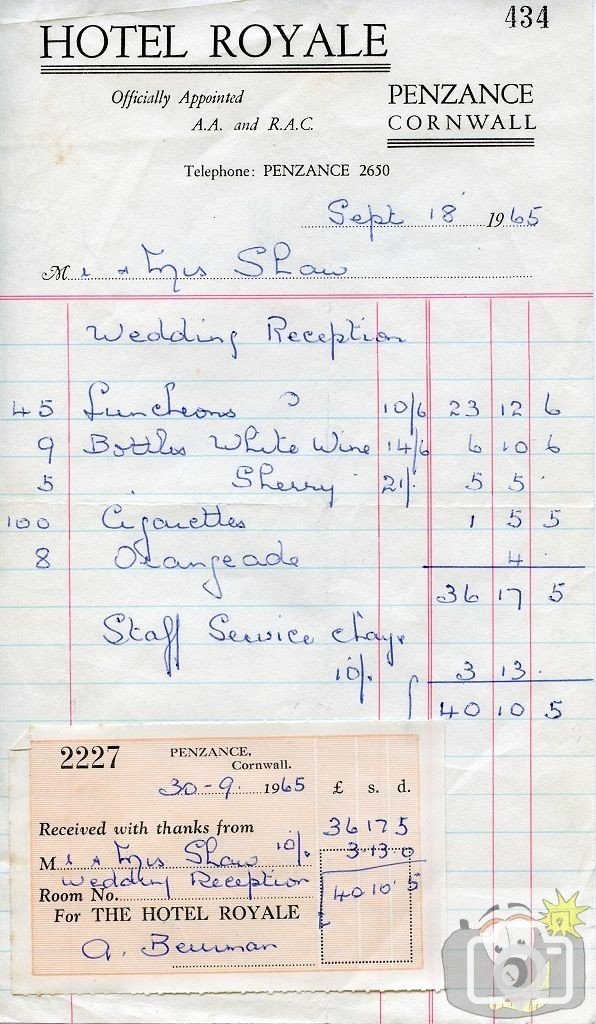 434
HOTEL ROYALE
Officially Appointed
A.A. and R.A.C.
PENZANCE
CORNWALL
Telephone: PENZANCE 2650
Sept 18 1965
Mr & Mrs Shaw
Wedding Reception
45 Luncheons 10/6 23 12 6
9 Bottles White Wine 14/6 6 10 6
5 " Sherry 21/- 5 5 -
100 Cigarettes 1 5 5
8 Orangeade 4 -
36 17 5
Staff Service charge
10% 3 13 -
40 10 5
2227
PENZANCE,
Cornwall.
30-9- 1965 £ s. d.
Received with thanks from 36 17 5
Mr & Mrs Shaw 10% 3 13 0
Wedding Reception
Room No. 40 10 5
For THE HOTEL ROYALE